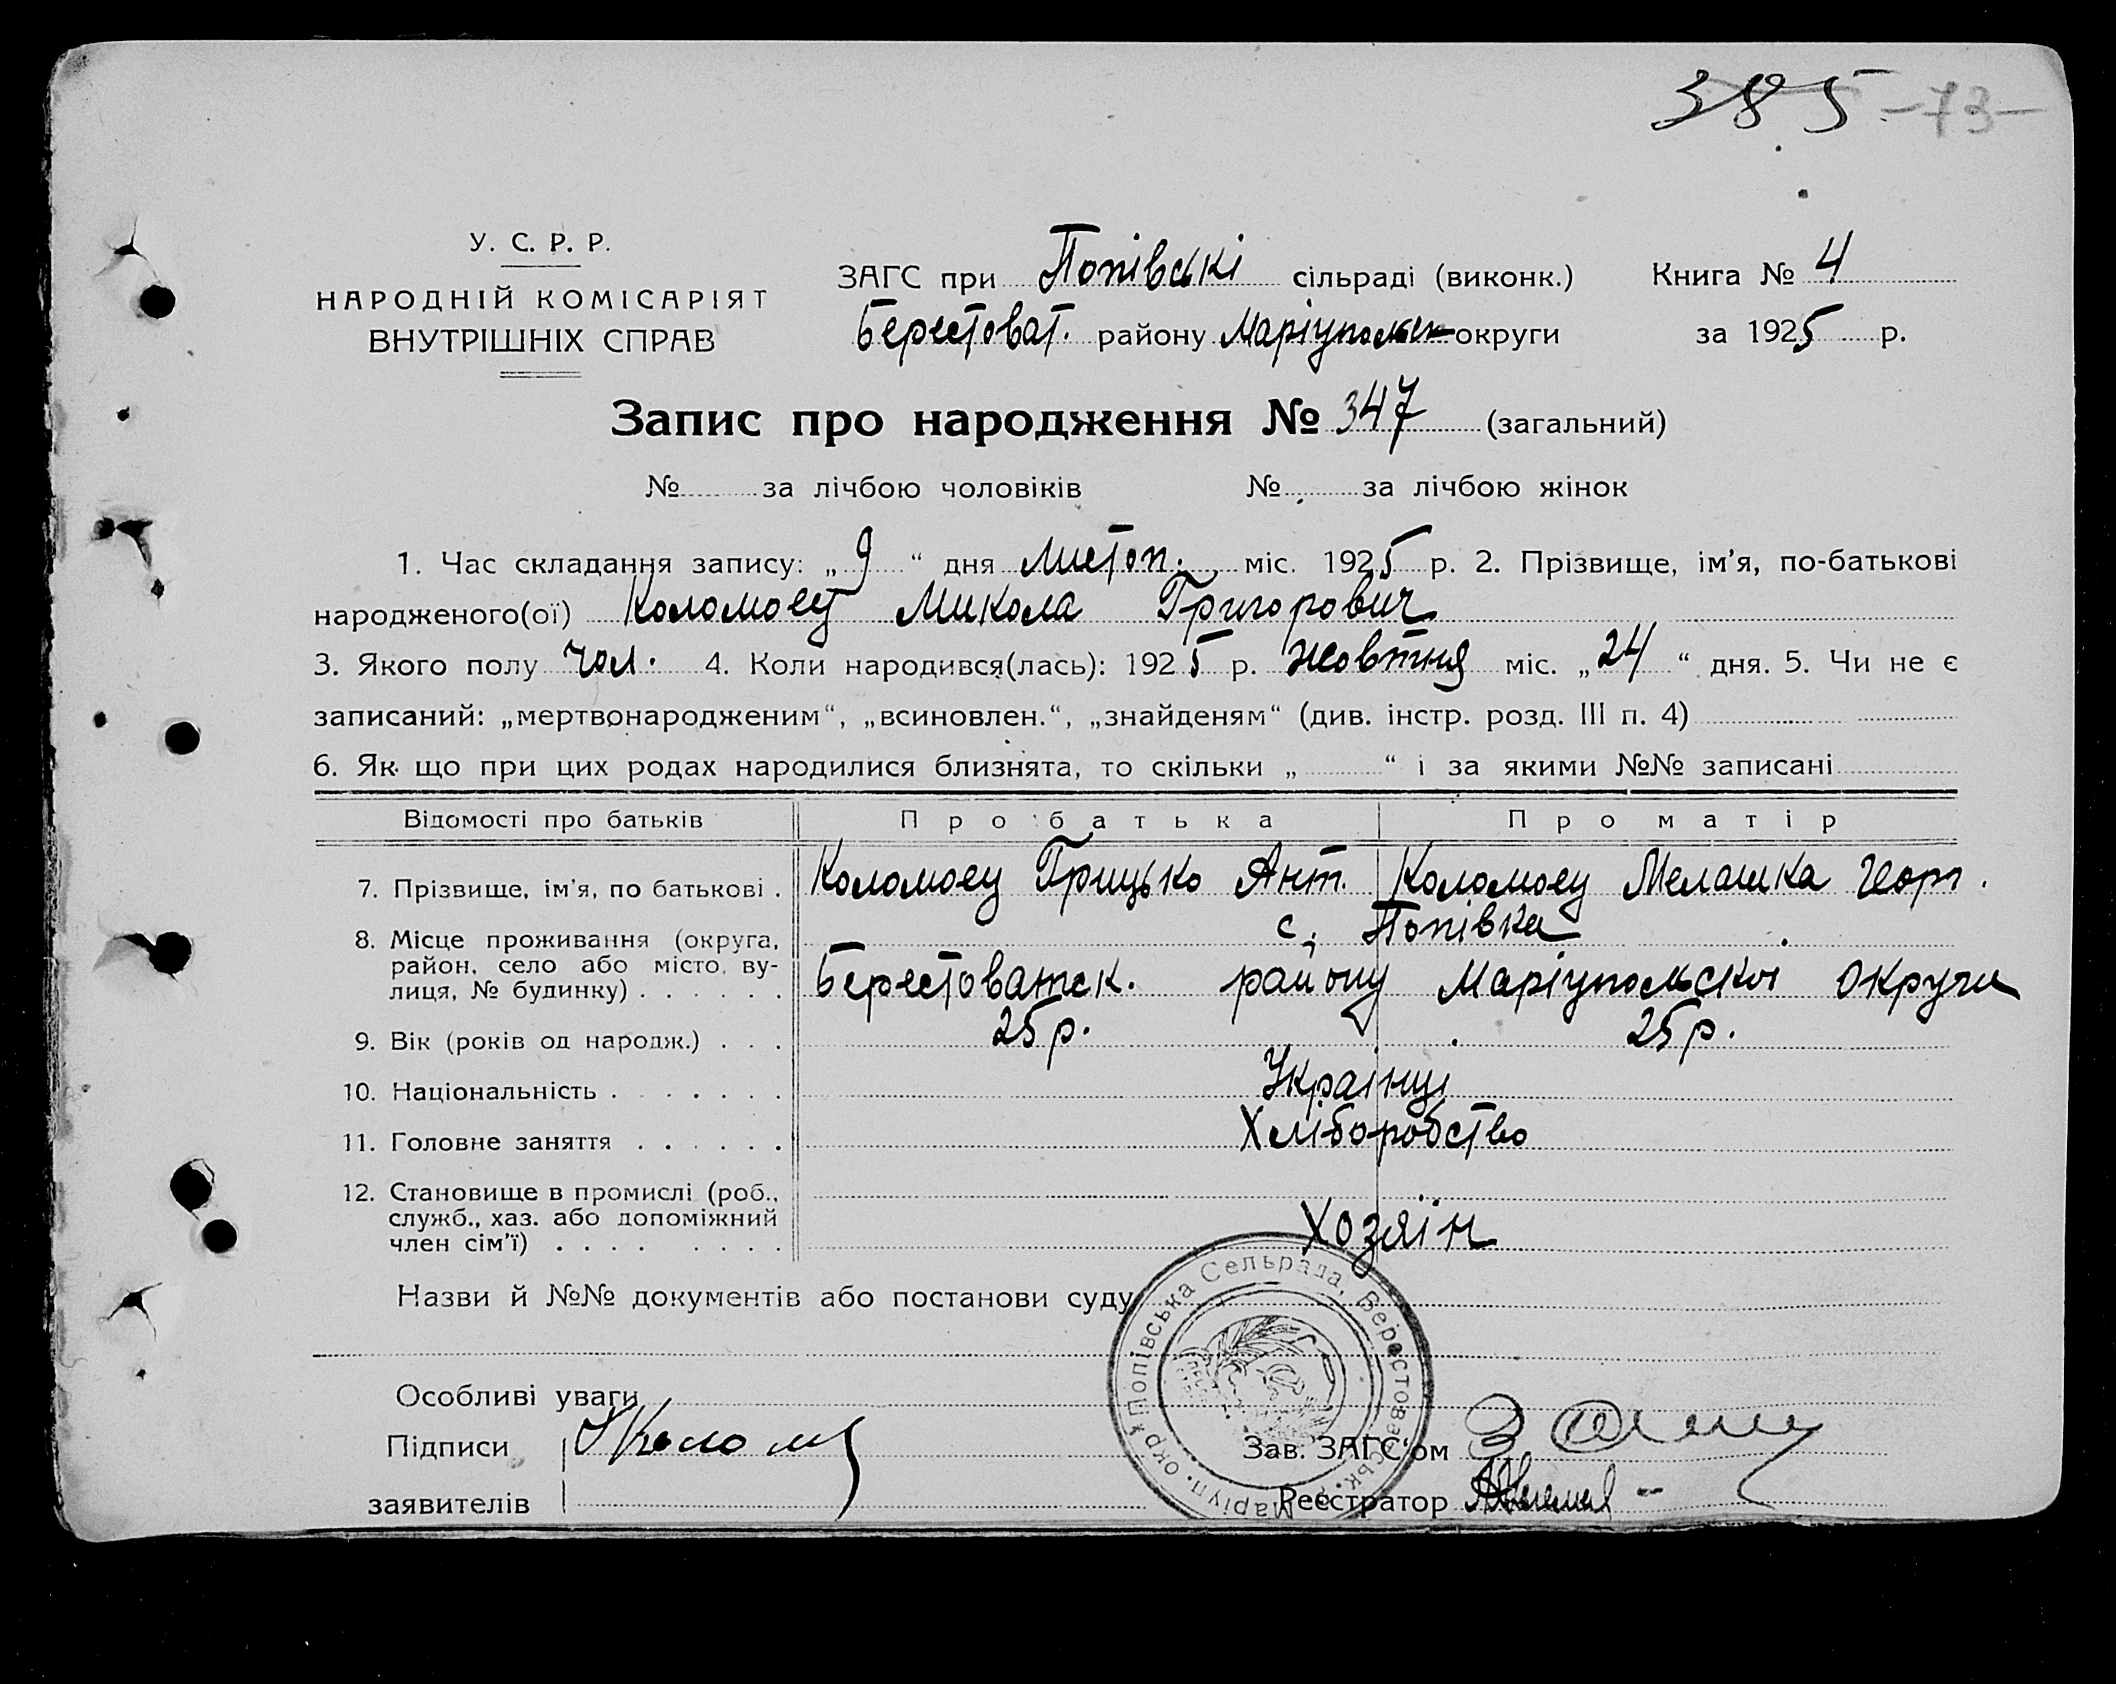 385 -73-
У. С. Р. Р.
НАРОДНІЙ КОМІСАРІЯТ
ВНУТРІШНІХ СПРАВ
ЗАГС при Попівскі сільраді (виконк.) Книга № 4
Берестоват. району Маріупольск округи за 1925 р.
Запис про народження № 347 (загальний)
№ за лічбою чоловіків № за лічбою жінок
1. Час складання запису: „9“ дня листоп. міс. 1925 р. 2. Прізвище, ім’я, по-батькові
народженого(ої) Коломоец Микола Григорович
3. Якого полу чол. 4. Коли народився(лась): 1925 р. жовтня міс. „24“ дня. 5. Чи не є
записаний: „мертвонародженим“, „всиновлен.“, „знайденям“ (див. інстр. розд. III п. 4)
6. Як що при цих родах народилися близнята, то скільки „ “ і за якими №№ записані
Відомості про батьків Про батька Про матір
7. Прізвище, ім’я, по батькові . Коломоец Грицько Ант. Коломоец Мелашка Георг.
8. Місце проживання (округа, с. Попівка
район, село або місто, ву-
лиця, № будинку) . . . . . . Берестоватск. району Маріупольскоі округи
9. Вік (років од народж.) . . . 25 р. 25 р.
10. Національність . . . . . . . Украінці
11. Головне заняття . . . . . . Хліборобство
12. Становище в промислі (роб.,
служб., хаз. або допоміжний
член сім’ї) . . . . . . . . Хозяін
Назви й №№ документів або постанови суду
Попівська Сельрада, Берестоватськ. Маріуп. окр.
Особливі уваги
Підписи Зав. ЗАГС‘ом
заявителів Реєстратор